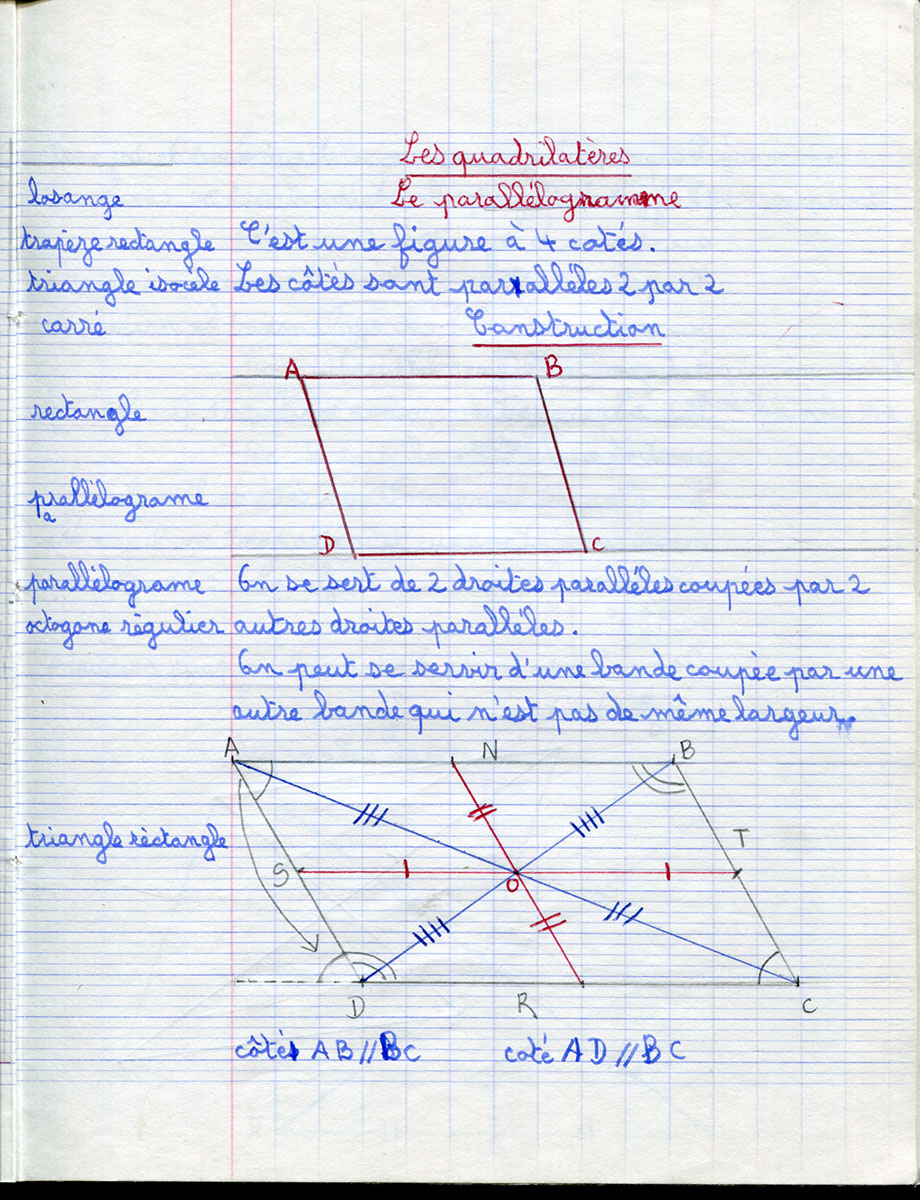 Les quadrilatères
losange
Le parallélogramme
trapèze rectangle
C'est une figure à 4 cotés.
triangle isocèle
Les côtés sont parallèles 2 par 2
carré
Construction
A
B
rectangle
prallélograme
a
D
C
parallélograme
On se sert de 2 droites parallèles coupées par 2
octogone régulier
autres droites parallèles.
On peut se servir d'une bande coupée par une
autre bande qui n'est pas de même largeur.
A
N
B
triangle rèctangle
T
S
O
D
R
C
côtés AB // BC
coté AD // BC